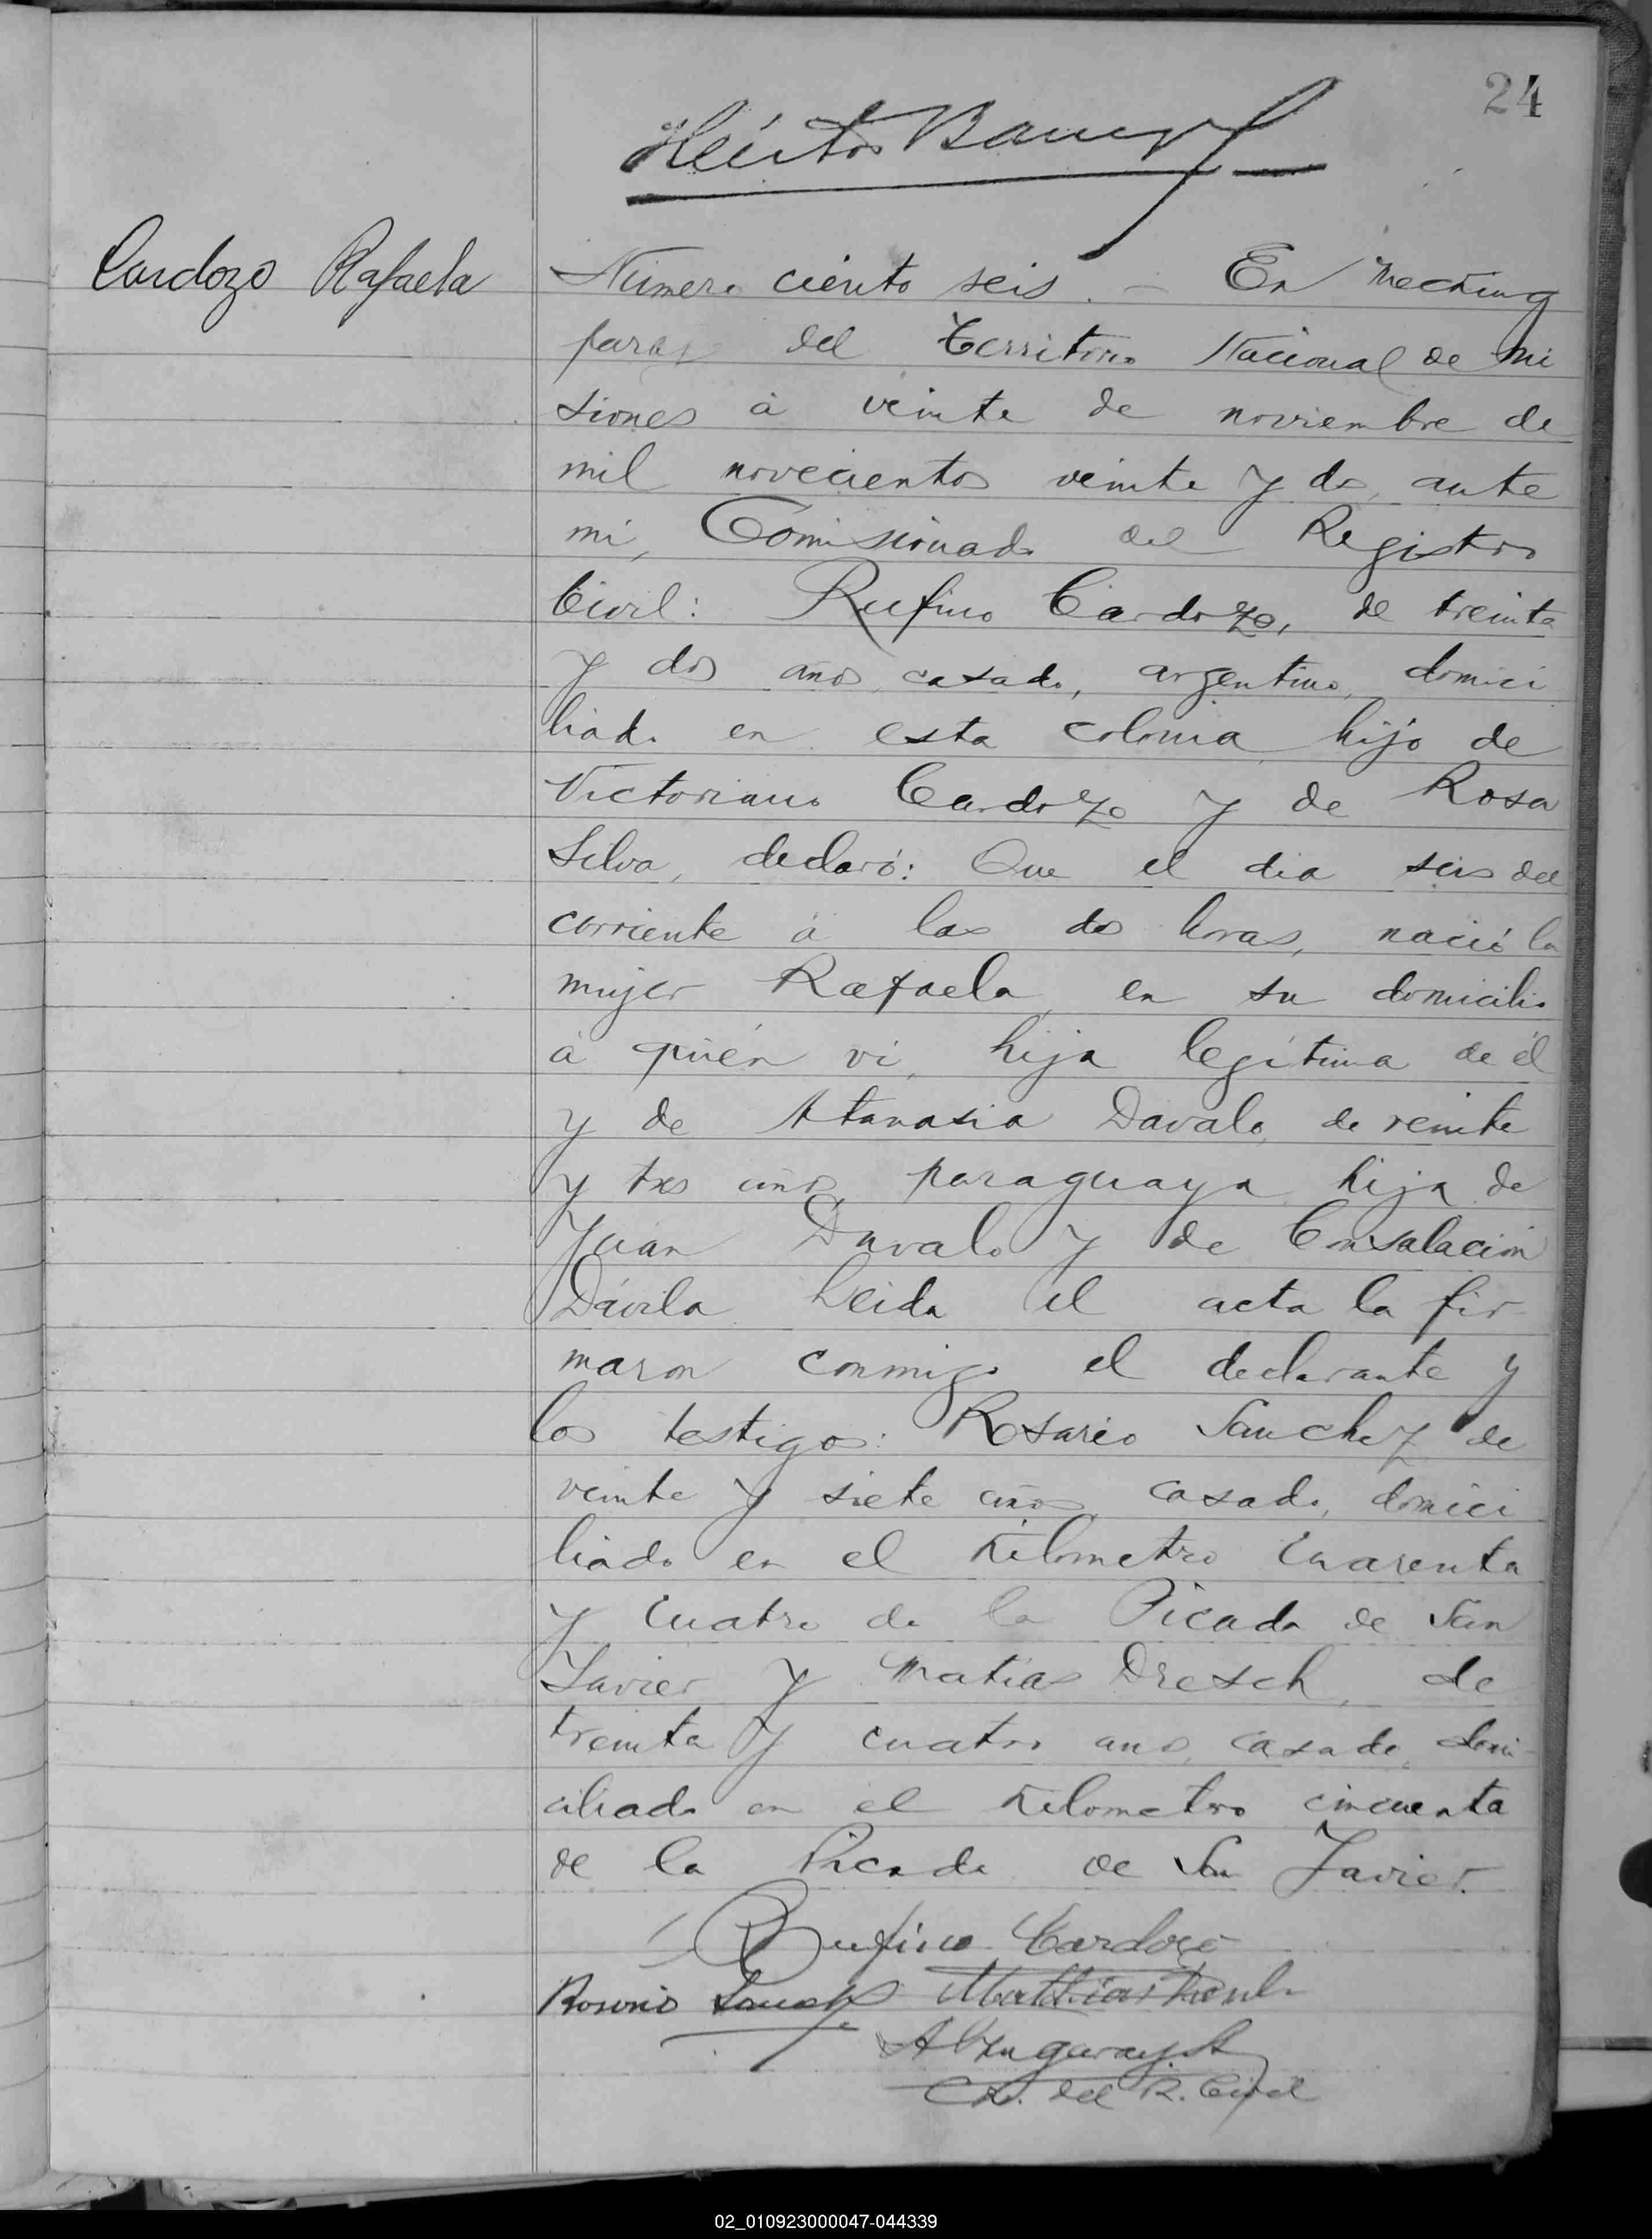 24
Cardozo Rafaela
Número ciento seis. — En Mecking
paraje del Territorio Nacional de Mi
siones á veinte de noviembre de
mil novecientos veinte y dos, ante
mi, Comisionado del Registro
Civil: Rufino Cardozo, de treinta
y dos años, casado, argentino, domici
liado en esta colonia, hijo de
Victoriano Cardozo y de Rosa
Silva, declaró: Que el dia seis del
corriente á las dos horas, nació la
mujer Rafaela, en su domicilio
á quién vi, hija legítima de él
y de Atanasia Davalo, de veinte
y tres años, paraguaya, hija de
Juan Davalo y de Consalación
Dávila. Leida el acta la fir
maron conmigo el declarante y
los testigos: Rosario Sanchez de
veinte y siete años, casado, domici
liado en el Kilometro cuarenta
y cuatro de la Picada de San
Javier y Matias Dresch, de
treinta y cuatro años, casado, domi
ciliado en el Kilometro cincuenta
de la Picada de San Javier.
Rufino Cardozo
Rosario Sanchez Matthias
del R. Civil
02_010923000047-044339